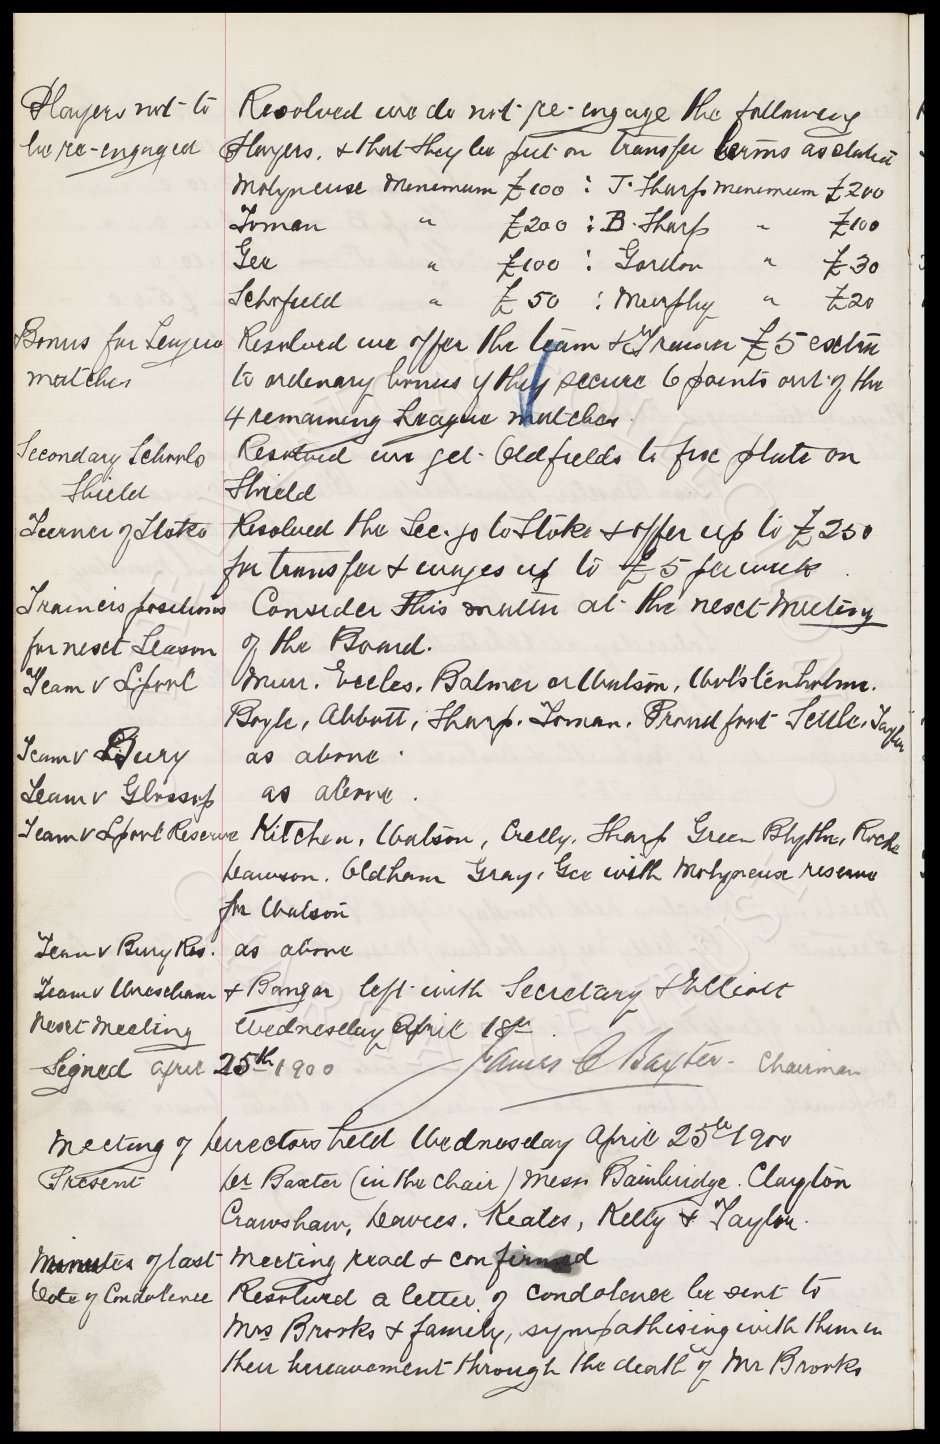 Players not to Resolved we do not re-engage the following
be re-engaged Players, & that they be put on transfer terms as stated
Molyneux Minimum £100 : J. Sharp minimum £200
Toman " £200 : B. Sharp " £100
Gee " £100 : Gordon " £30
Schofield " £50 : Murphy " £20
Bonus for League Resolved we offer the team & Trainer £5 extra
matches to ordinary bonus if they secure 6 points out of the
4 remaining League matches.
Secondary Schools Resolved we get Oldfields to fix plate on
Shield Shield
Turner of Stoke Resolved the Sec. go to Stoke & offer up to £250
for transfer & wages up to £5 per week.
Trainers positions Consider this matter at the next Meeting
for next Season of the Board.
Team v L'pool Muir, Eccles, Balmer or Watson, Wolstenholme.
Boyle, Abbott, Sharp. Toman. Proudfoot Settle, Taylor
Team v Bury as above.
Team v Glossop as above.
Team v L'pool Reserve Kitchen, Watson, Crelly, Sharp Green Blythe, Roche
Dawson. Oldham Gray, Gee with Molyneux reserve
for Watson
Team v Bury Res. as above
Team v Wrexham & Bangor left with Secretary & Elliott
Next Meeting Wednesday April 18th.
Signed April 25th 1900 James C Baxter - Chairman
Meeting of Directors held Wednesday April 25th 1900
Present Dr Baxter (in the chair) Messrs Bainbridge. Clayton
Crawshaw, Davies, Keates, Kelly & Taylor.
Minutes of last Meeting read & confirmed
Vote of Condolence Resolved a letter of condolence be sent to
Mrs Brooks & family, sympathising with them in
their bereavement through the death of Mr Brooks